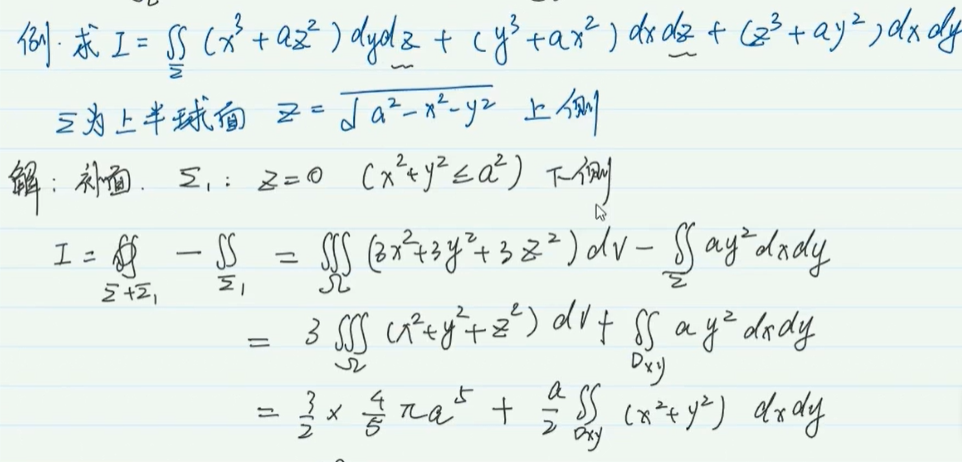 例. 求 I = ∬_Σ (x³ + az²) dydz + (y³ + ax²) dxdz + (z³ + ay²) dxdy
Σ为上半球面 z = √(a² - x² - y²) 上侧
解: 补面. Σ₁: z = 0 (x² + y² ≤ a²) 下侧
I = ∯_{Σ+Σ₁} - ∬_{Σ₁} = ∭_Ω (3x² + 3y² + 3z²) dv - ∬_Σ ay² dxdy
= 3 ∭_Ω (x² + y² + z²) dv + ∬_{Dxy} a y² dxdy
= 3/2 × 4/5 πa⁵ + a/2 ∬_{Dxy} (x² + y²) dxdy